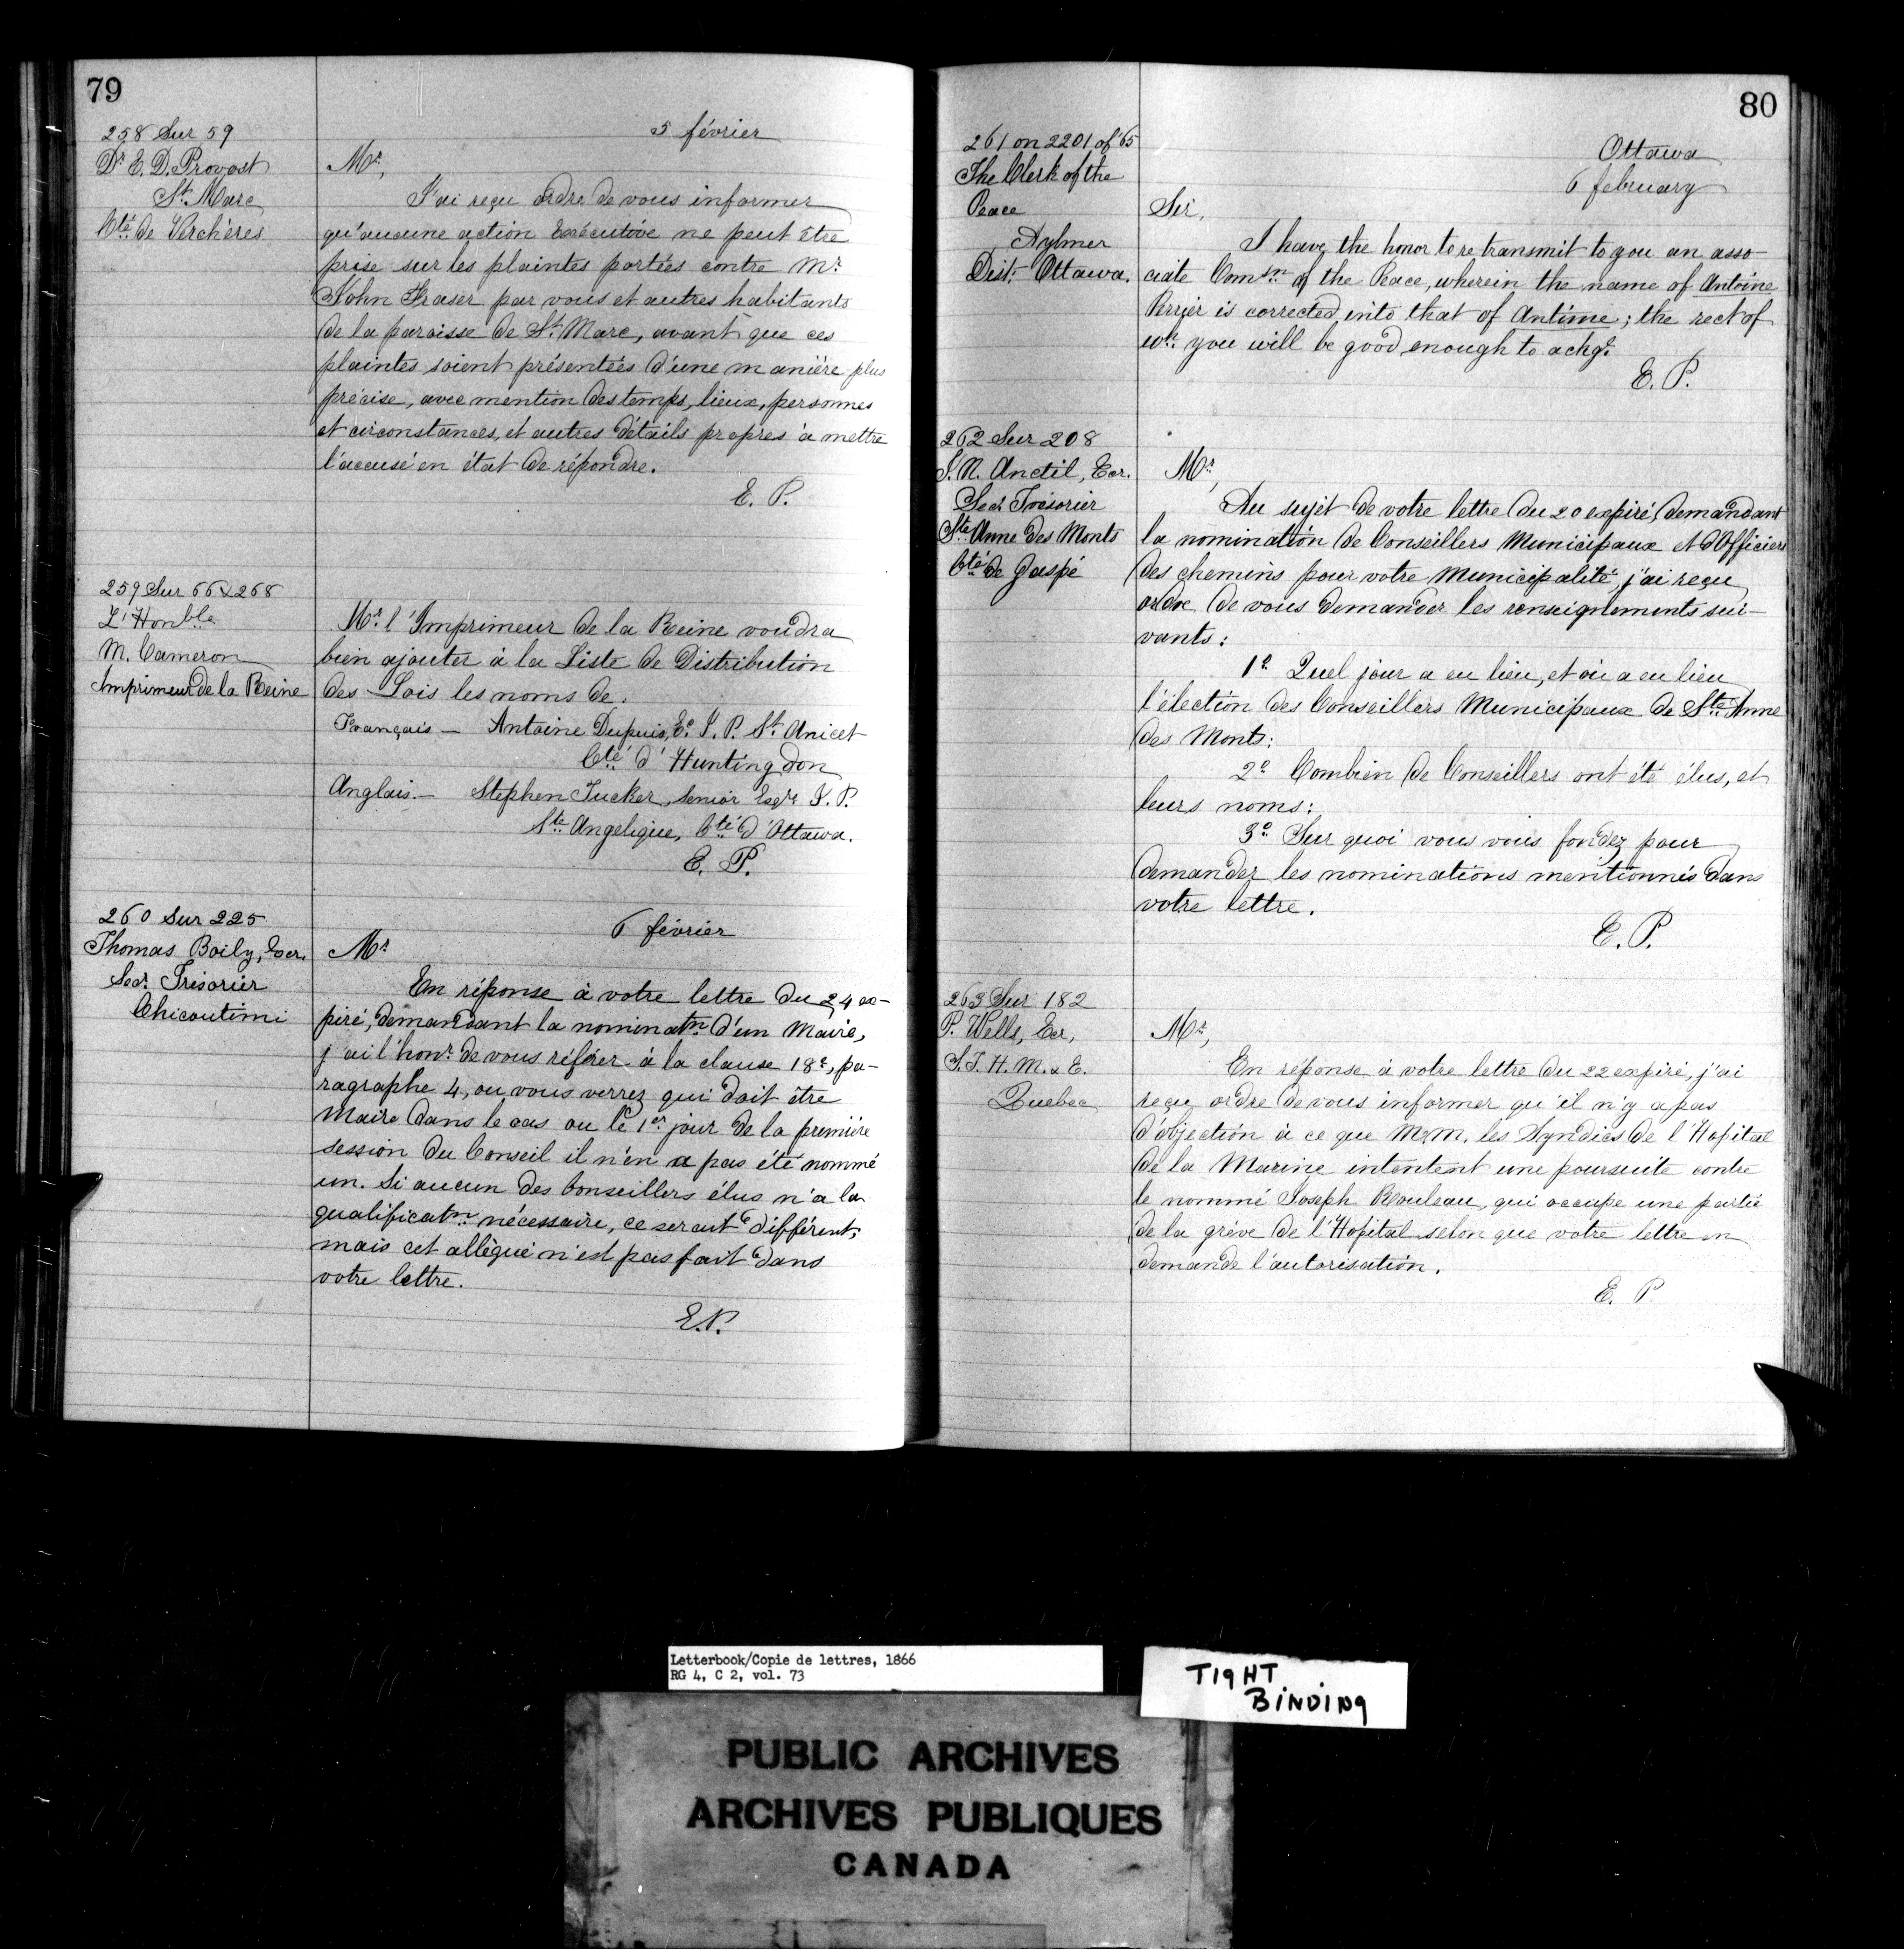 79
258 Sur 59
Dr E. D. Provost
St. Marc
Cté de Verchères
5 février
Mr,
J'ai reçu ordre de vous informer
qu'aucune action Exécutive ne peut être
prise sur les plaintes portées contre Mr
John Fraser par vous et autres habitants
de la paroisse de St. Marc, avant que ces
plaintes soient présentées d'une manière plus
précise, avec mention des temps, lieux, personnes
et circonstances, et autres détails propres à mettre
l'accusé en état de répondre.
E. P.
259 Sur 66 & 268
L'Honble
M. Cameron
Imprimeur de la Reine
Mr. l'Imprimeur de la Reine voudra
bien ajouter à la Liste de Distribution
des Lois les noms de.
Français — Antoine Dupuis, Er J. P. St. Anicet
Cté d'Huntingdon
Anglais. — Stephen Tucker, Senior Esqre J. P.
Ste Angelique, Cté d'Ottawa.
E. P.
260 Sur 225
Thomas Boily, Ecr.
Secr. Trésorier
Chicoutimi
6 février
Mr
En réponse à votre lettre du 24 ex-
piré, demandant la nominatn d'un Maire,
j'ai l'honr. de vous référer à la clause 18e, pa-
ragraphe 4, ou vous verrez qui doit être
Maire dans le cas ou le 1er jour de la première
session du Conseil il n'en a pas été nommé
un. Si aucun des Conseillers élus n'a la
qualificatn nécessaire, ce serait différent,
mais cet allègué n'est pas fait dans
votre lettre.
E.P.
80
261 on 2201 of '65
The Clerk of the
Peace
Aylmer
Dist. Ottawa.
Ottawa
6 february
Sir,
I have the honor to re transmit to you an asso-
ciate Comsn of the Peace, wherein the name of Antoine
Perrier is corrected into that of Antime; the rect of
wh. you will be good enough to ackge.
E. P.
262 Sur 208
J. N. Anctil, Ecr.
Secr. Trésorier
Ste Anne des Monts
Cté de Gaspé
Mr,
Au sujet de votre lettre du 20 expiré, demandant
la nomination de Conseillers Municipaux et d'Officiers
des chemins pour votre Municipalité, j'ai reçu
ordre de vous demander les renseignements sui-
vants:
1o Quel jour a eu lieu, et où a eu lieu
l'élection des Conseillers Municipaux de Ste Anne
des Monts:
2o Combien de Conseillers ont été élus, et
leurs noms:
3o Sur quoi vous vous fondez pour
demander les nominations mentionnés dans
votre lettre.
E. P.
263 Sur 182
P. Wells, Ecr,
S. T. H. M. & E.
Quebec
Mr,
En réponse à votre lettre du 22 expiré, j'ai
reçu ordre de vous informer qu'il n'y a pas
d'objection à ce que M.M. les Syndics de l'Hopital
de la Marine intentent une poursuite contre
le nommé Joseph Rouleau, qui occupe une partie
de la grève de l'Hopital selon que votre lettre en
demande l'autorisation.
E. P
Letterbook/Copie de lettres, 1866
RG 4, C 2, vol. 73
TIGHT
BINDING
PUBLIC ARCHIVES
ARCHIVES PUBLIQUES
CANADA